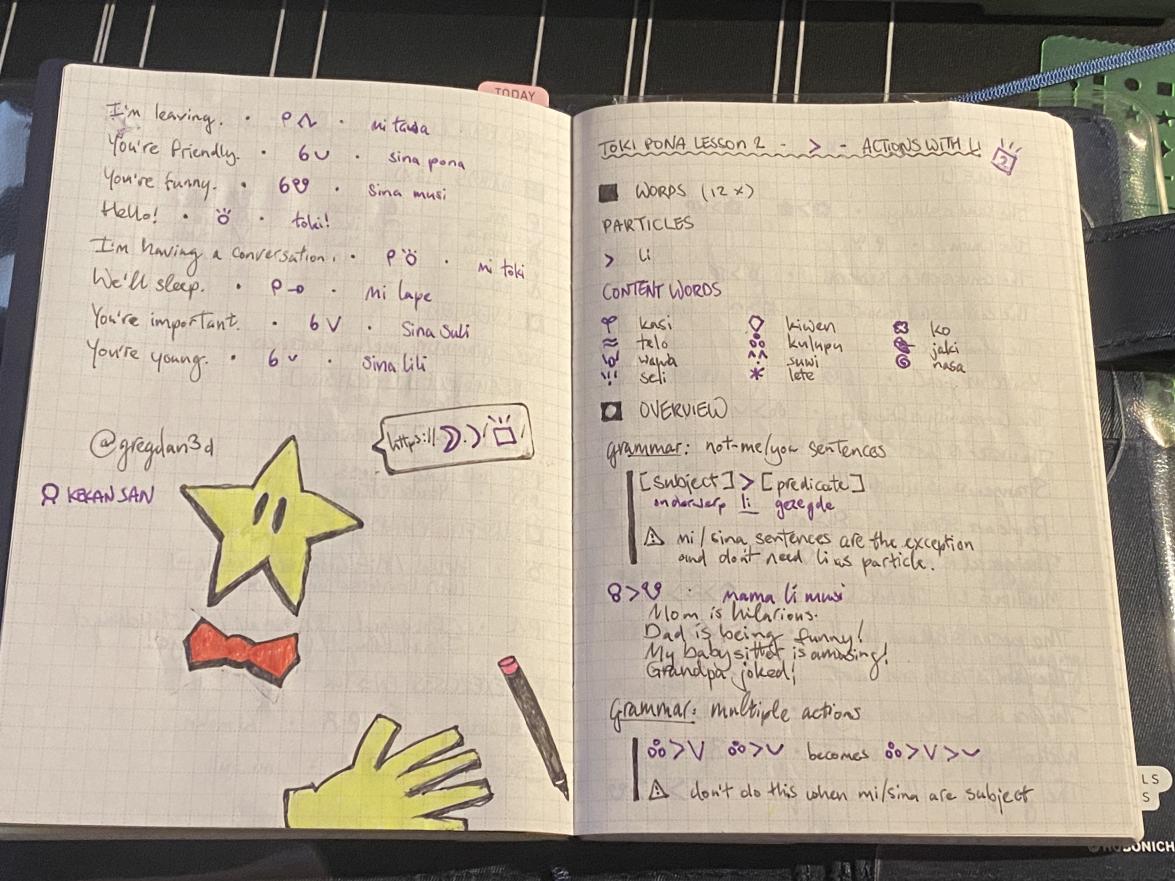 TODAY
I'm leaving. · · mi tawa
You're friendly. · · sina pona
You're funny. · · sina musi
Hello! · · toki!
I'm having a conversation. · · mi toki
We'll sleep. · · mi lape
You're important. · · sina suli
You're young. · · sina lili
@gregdan3d
https://
KEKAN SAN
TOKI PONA LESSON 2 - > - ACTIONS WITH LI
2
WORDS (12x)
PARTICLES
> li
CONTENT WORDS
kasi kiwen ko
telo kulupu jaki
wawa suwi nasa
seli lete
OVERVIEW
grammar: not-me/you sentences
[subject] > [predicate]
onderwerp li gezegde
mi/sina sentences are the exception
and don't need li as particle.
mama li musi
Mom is hilarious.
Dad is being funny!
My babysitter is amusing!
Grandpa joked!
Grammar: multiple actions
becomes
don't do this when mi/sina are subject